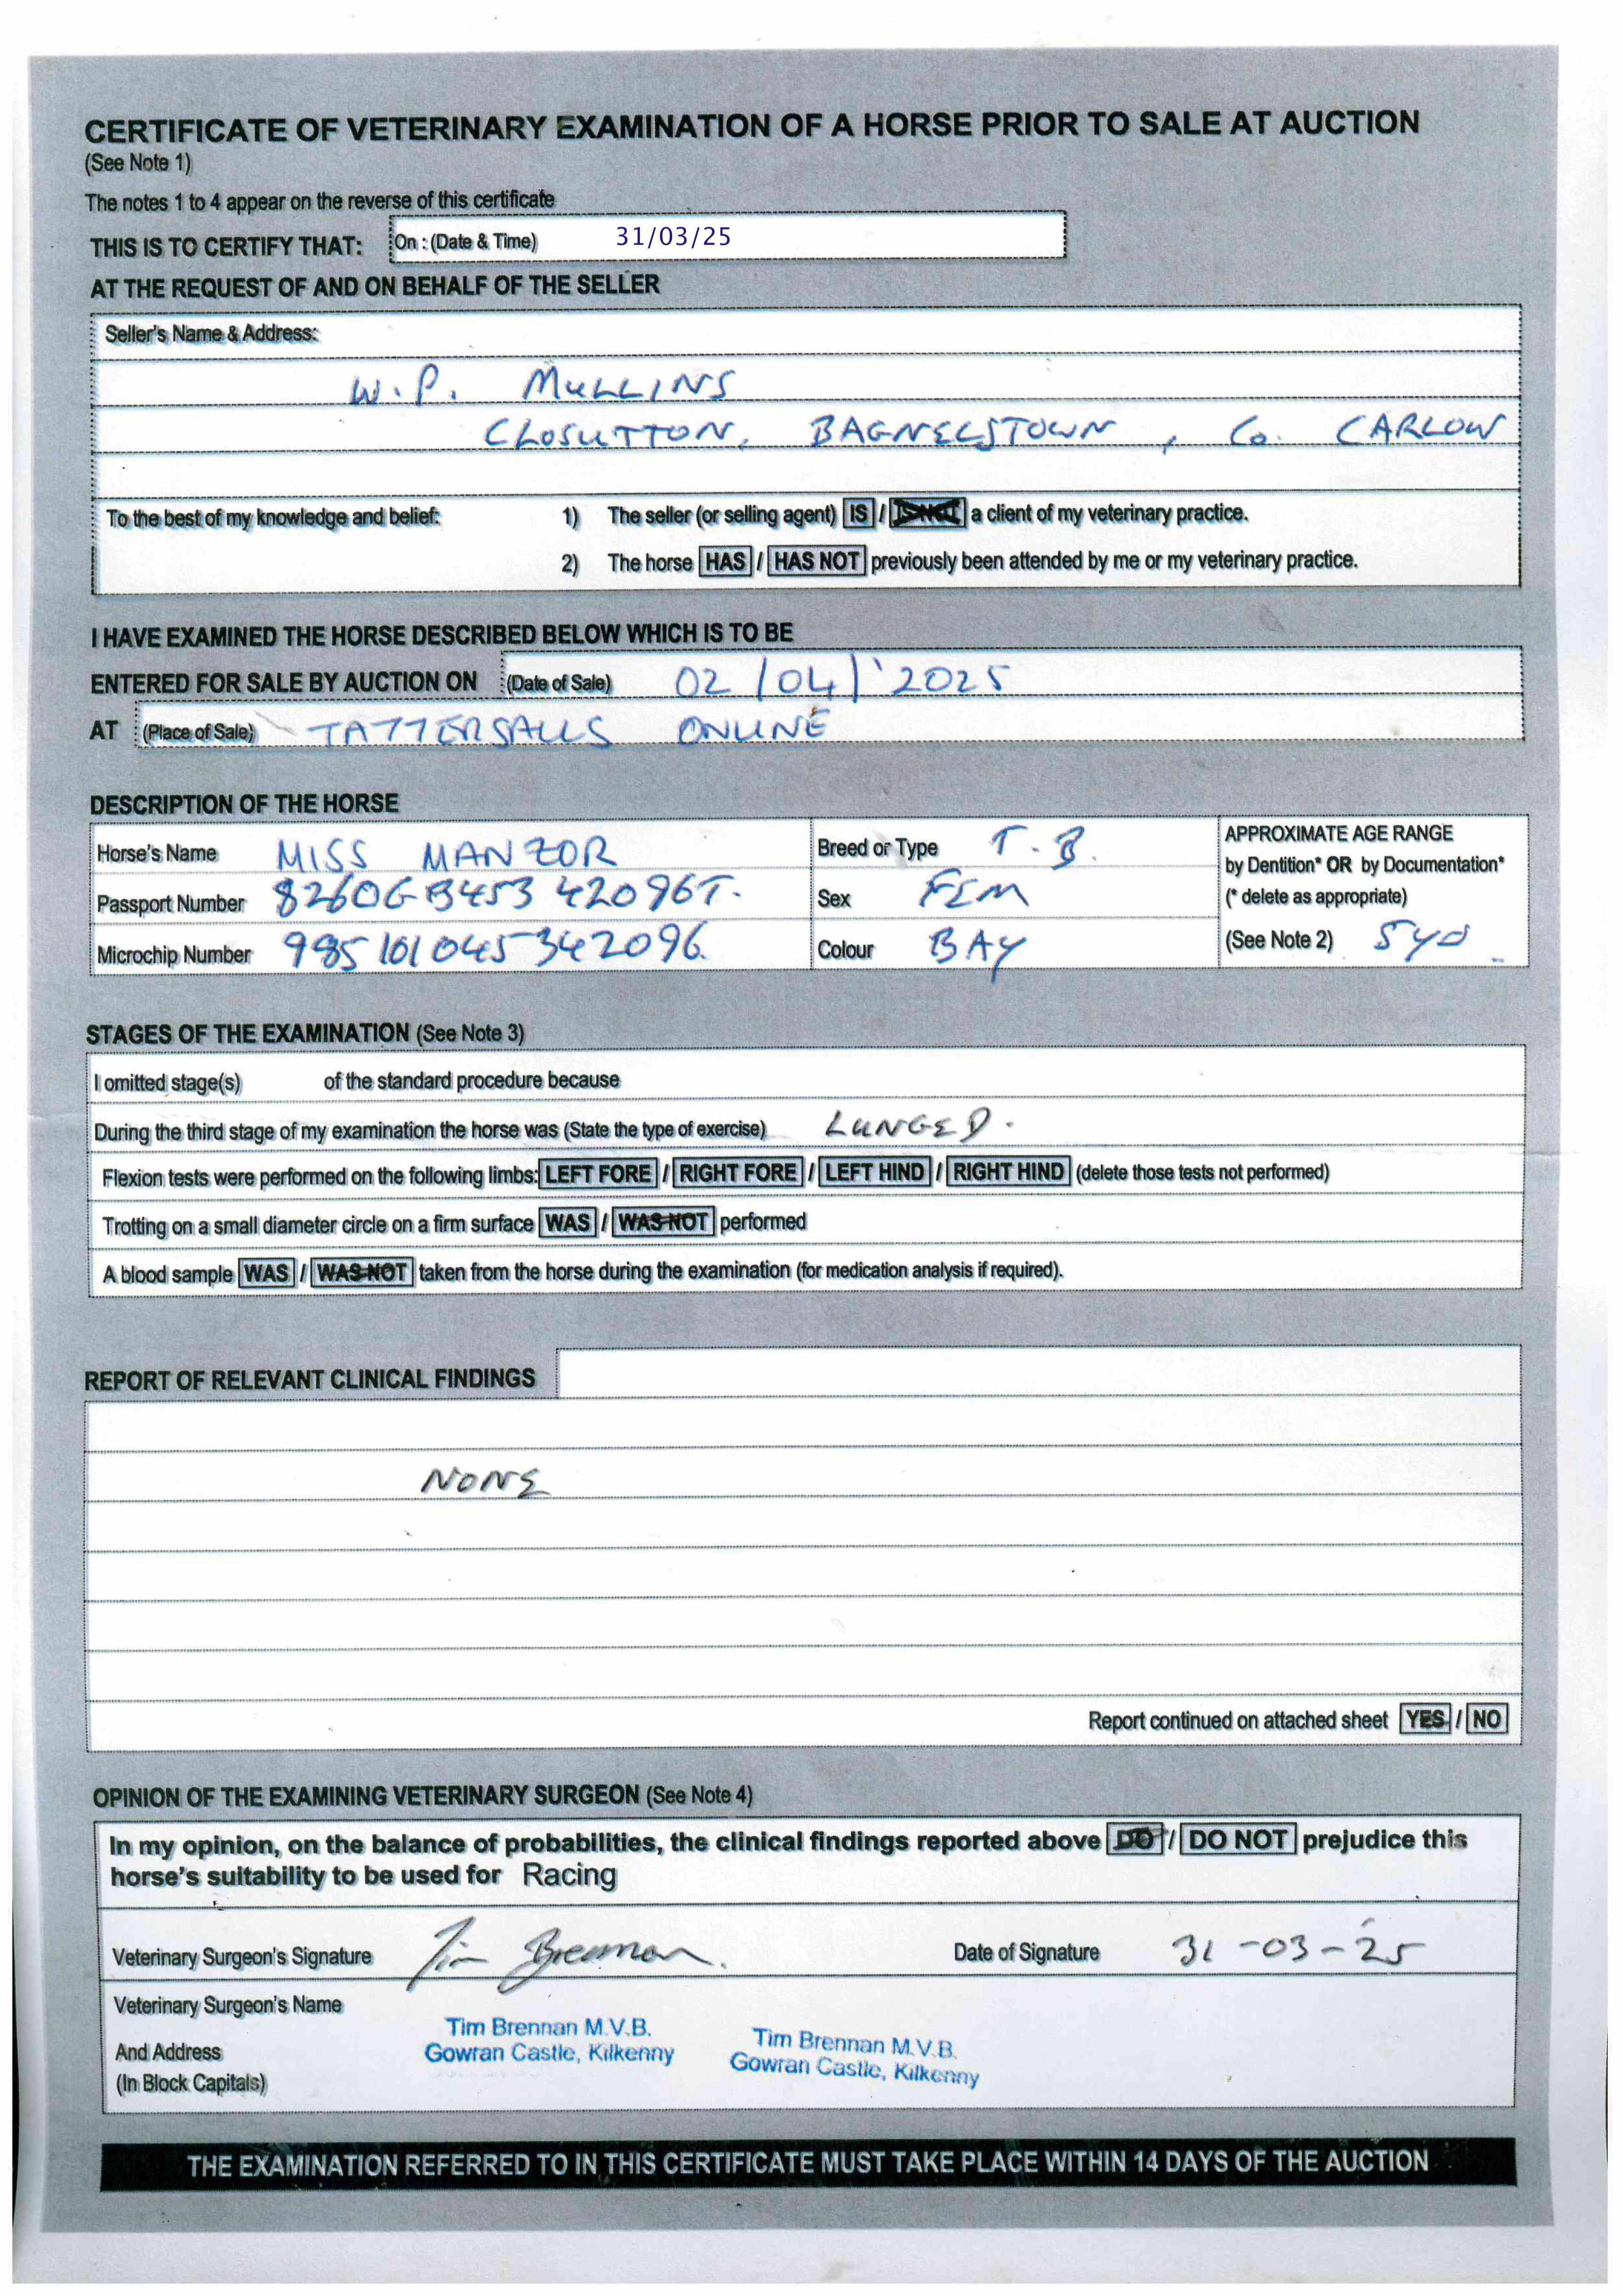 CERTIFICATE OF VETERINARY EXAMINATION OF A HORSE PRIOR TO SALE AT AUCTION
(See Note 1)
The notes 1 to 4 appear on the reverse of this certificate
THIS IS TO CERTIFY THAT: On : (Date & Time) 31/03/25
AT THE REQUEST OF AND ON BEHALF OF THE SELLER
Seller's Name & Address:
W.P. MULLINS
CLOSUTTON, BAGNELSTOWN, Co. CARLOW
To the best of my knowledge and belief: 1) The seller (or selling agent) IS / IS NOT a client of my veterinary practice.
2) The horse HAS / HAS NOT previously been attended by me or my veterinary practice.
I HAVE EXAMINED THE HORSE DESCRIBED BELOW WHICH IS TO BE
ENTERED FOR SALE BY AUCTION ON (Date of Sale) 02/04/'2025
AT (Place of Sale) TATTERSALLS ONLINE
DESCRIPTION OF THE HORSE
Horse's Name MISS MANZOR
Passport Number 8260GB453 42096T.
Microchip Number 985 101 045 342096.
Breed or Type T.B.
Sex FEM
Colour BAY
APPROXIMATE AGE RANGE
by Dentition* OR by Documentation*
(* delete as appropriate)
(See Note 2) 5yo
STAGES OF THE EXAMINATION (See Note 3)
I omitted stage(s) of the standard procedure because
During the third stage of my examination the horse was (State the type of exercise) LUNGED.
Flexion tests were performed on the following limbs: LEFT FORE / RIGHT FORE / LEFT HIND / RIGHT HIND (delete those tests not performed)
Trotting on a small diameter circle on a firm surface WAS / WAS NOT performed
A blood sample WAS / WAS NOT taken from the horse during the examination (for medication analysis if required).
REPORT OF RELEVANT CLINICAL FINDINGS
NONE
Report continued on attached sheet YES / NO
OPINION OF THE EXAMINING VETERINARY SURGEON (See Note 4)
In my opinion, on the balance of probabilities, the clinical findings reported above DO / DO NOT prejudice this
horse's suitability to be used for Racing
Veterinary Surgeon's Signature Tim Brennan. Date of Signature 31-03-25
Veterinary Surgeon's Name
And Address
(In Block Capitals)
Tim Brennan M.V.B.
Gowran Castle, Kilkenny
Tim Brennan M.V.B.
Gowran Castle, Kilkenny
THE EXAMINATION REFERRED TO IN THIS CERTIFICATE MUST TAKE PLACE WITHIN 14 DAYS OF THE AUCTION